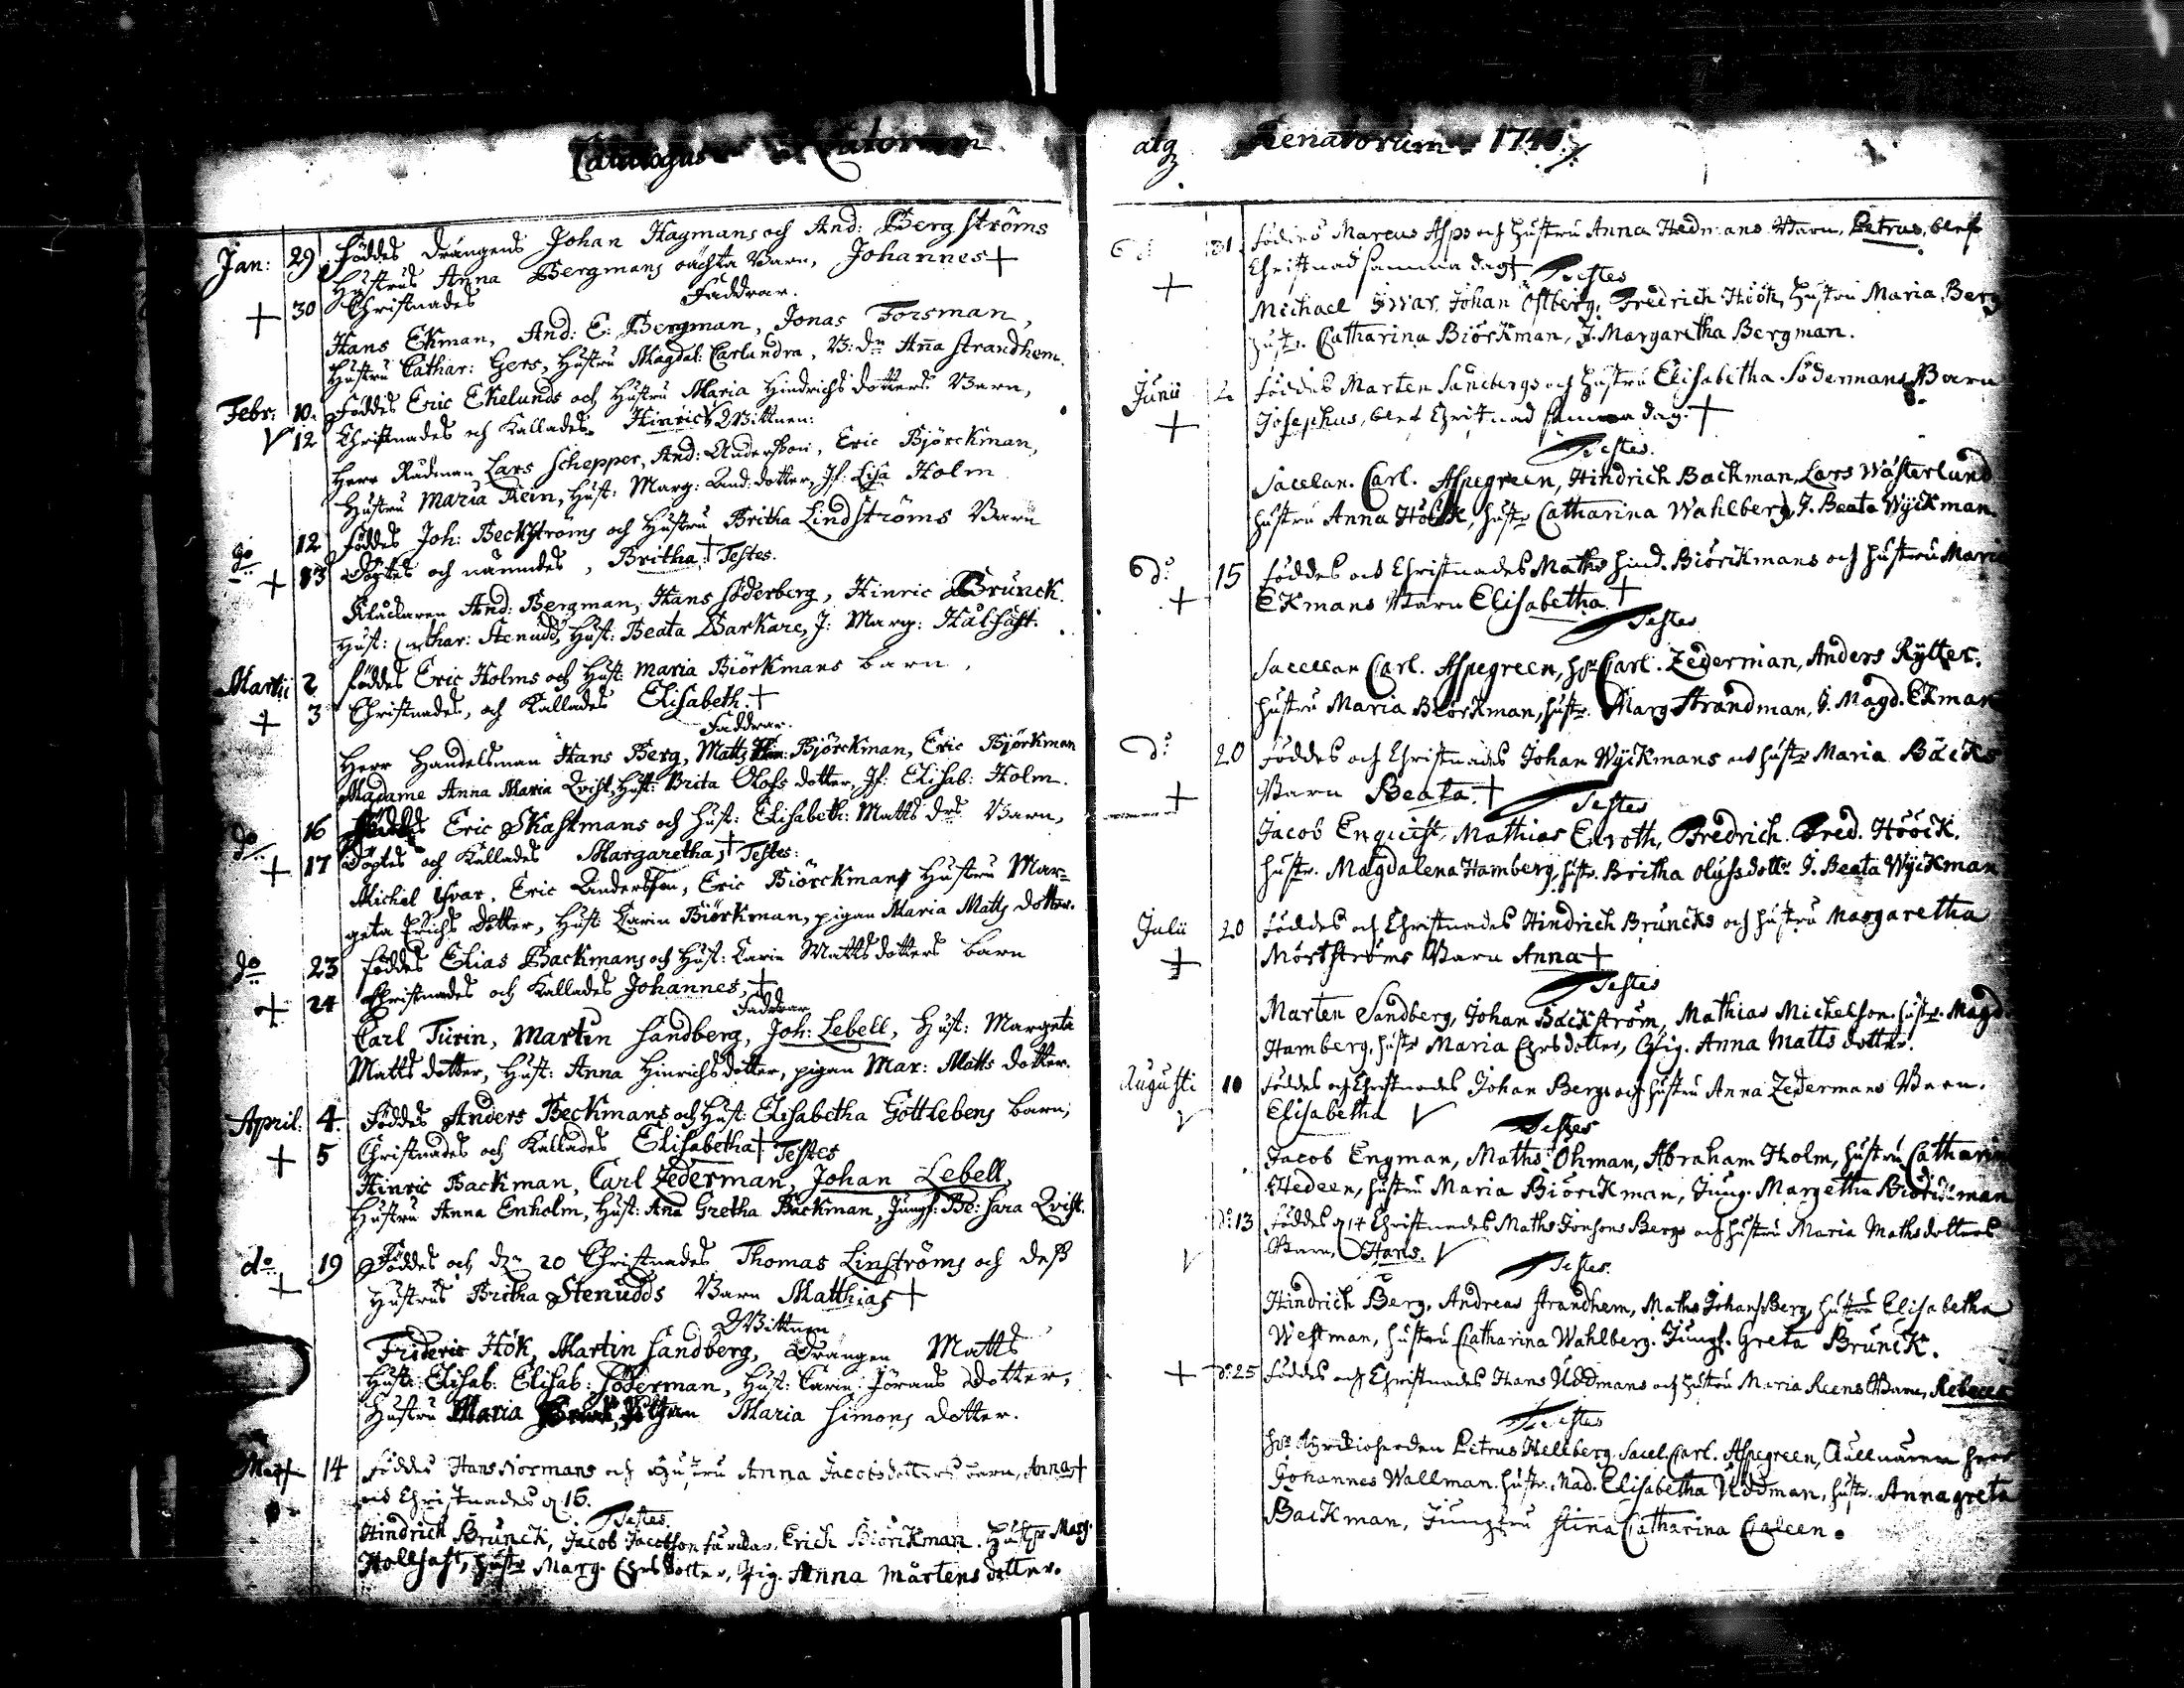 Catalogus
Jan: 29 Föddes drängens Johan Hagmans och And: Bergströms
Hustrus Anna Bergmans oächta Barn, Johannes +
+ 30 Christnades Faddrar.
Hans Ekman, And: E: Bergman, Jonas Forsman,
Hustru Cathar: Gers, Hustru Magdal: Carlundra, Anna Strandhem.
Febr: 10. Föddes Eric Ekelunds och Hustru Maria Hindrichs dotters Barn,
12 Christnades och Kallades Hinrich Wittnen:
Herr Rådman Lars Schepper, And: Andersson, Eric Björckman,
Hustru Maria Rein, Hust: Marg: And: dotter, Jf: Lisa Holm
do 12 Föddes Joh: Beckströms och Hustru Britha Lindströms Barn
+ 13 Döptes och nämndes, Britha + Testes.
Klockaren And: Bergman, Hans Söderberg, Hinric Brunck.
Hust: Cathar: Stenudd, Hust: Beata Barkare, J: Marg: Hålfast.
Martii 2 föddes Eric Holms och Hust: Maria Biörkmans barn,
+ 3 Christnades, och Kallades Elisabeth. +
Faddrar.
Herr Handelsman Hans Berg, Matts Björckman, Eric Björkman
Madame Anna Maria Qvist, Hust: Brita Olofs dotter, Jf: Elisab: Holm.
do 16 Föddes Eric Skastmans och Hust: Elisabeth: Matts drs Barn,
+ 17 Döptes och Kallades Margaretha, + Testes:
Michel Ifvar, Eric Andersson, Eric Biörckmans Hustru Mar=
geta Erichs dotter, Hust: Karin Biörkman, pigan Maria Matts dotter.
do 23 föddes Elias Backmans och Hust: Carin Mattsdotters barn
+ 24 Christnades och Kallades Johannes, +
Faddrar
Carl Turin, Martin Sandberg, Joh: Lebell, Hust: Margeta
Matts dotter, Hust: Anna Hinrichsdotter, pigan Mar: Matts dotter.
April: 4. Föddes Anders Beckmans och Hust: Elisabetha Gottlebens barn,
+ 5 Christnades och Kallades Elisabetha + Testes
Hinric Backman, Carl Zederman, Johan Lebell,
Hustru Anna Enholm, Hust: Ana Gretha Backman, Jungf: Be: Sara Qvist.
do 19 Föddes och dn 20 Christnades Thomas Linströms och dess
+ Hustrus Britha Stenudds Barn Matthias +
Wittnen
Frideric Hök, Martin Sandberg, Drängen Matts
Hust: Elisab: Elisab: Söderman, Hust: Carin Jörans dotter,
Hustru Maria Maria Simons dotter.
14 Föddes Hans Normans och Hustru Anna Jacobsdotters barn, Anna +
och Christnades d. 16.
Testes.
Hindrich Brunck, Jacob Jacobson, Erich Biörckman. Hustr Marg.
Hollfast, hustr Marg. Ersdotter, Pig. Anna Mårtens dotter.
atq Renatorum
31 föddes Marcus Asps och hustru Anna Hedmans Barn, Petrus, blef
+ Christnad samma dag + Testes
Michael Iwar, Johan Östberg, Fredrich Höök, hustru Maria Berg
hustr. Catharina Biörckman, J. Margaretha Bergman.
Junii 2 föddes Marten Sandbergs och hustru Elisabetha Södermans Barn
+ Josephus, blef Christnad samma dag. +
Testes.
Sacelan. Carl. Aspegreen, Hindrich Backman, Lars Wästerlund
hustru Anna Höök, hustr Catharina Wahlberg, J. Beata Wyckman.
do 15 föddes och Christnades Maths Hind. Biörckmans och hustru Maria
+ Ekmans Barn Elisabetha. +
Testes
Sacellan Carl. Aspegreen, hr Carl. Zederman, Anders Rytter.
hustru Maria Biörckman, hustr. Marg Strandman, J. Magd. Ekman
do 20 Föddes och Christnades Johan Wyckmans och hustr Maria Bäcks
+ Barn Beata. + Testes
Jacob Enquist, Mathias Enroth, Fredrich Fred. Höök.
hustr. Magdalena Hamberg, hustr. Britha Olufsdotter J. Beata Wyckman
Julii 20 föddes och Christnades Hindrich Bruncks och hustru Margaretha
+ Mörtströms Barn Anna +
Testes
Marten Sandberg, Johan Bäckström, Mathias Michelson, hustr. Magd
Hamberg, hustr Maria Ersdotter, Pig. Anna Matts dotter.
Augusti 10 föddes och Christnades Johan Bergs och hustru Anna Zedermans Barn.
Elisabetha
Testes
Jacob Engman, Maths Öhman, Abraham Holm, hustru Catharin
Hedeen, hustru Maria Biörckman, Jung. Margetha Biörckman
do: 13 föddes d 14 Christnades Maths Jonsons Bergs och hustru Maria Mathsdotters
Barn, Hans.
Testes.
Hindrich Berg, Andreas Strandhem, Maths Johans Berg, hustru Elisabetha
Westman, hustru Catharina Wahlberg. Jungf. Greta Brunck.
+ do: 25 föddes och Christnades Hans Uddmans och hustru Maria Reens Barn, Rebecca
Testes
Petrus Hellberg, Sacel. Carl. Aspegreen, herr
Johannes Wallman. hustr. Mad. Elisabetha Uddman, hustr. Annagreta
Backman, Jungfru Stina Catharina Caleen.